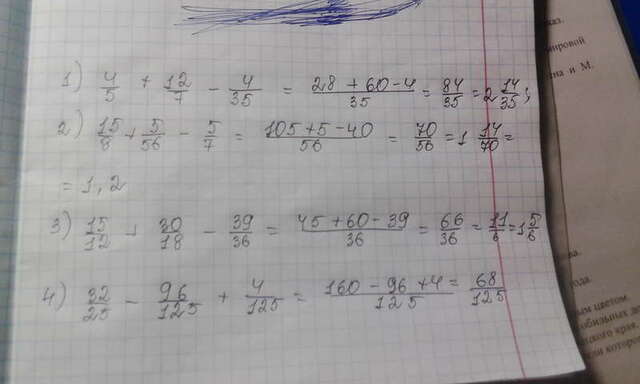 каз.
мировой
на и М.
1) 4/5 + 12/7 - 4/35 = 28 + 60 - 4/35 = 84/35 = 2 14/35;
2) 15/8 + 5/56 - 5/7 = 105 + 5 - 40/56 = 70/56 = 1 14/70 =
= 1,2
3) 15/12 + 30/18 - 39/36 = 45 + 60 - 39/36 = 66/36 = 11/6 = 1 5/6
4) 32/25 - 96/125 + 4/125 = 160 - 96 + 4/125 = 68/125
ва.
года.
ым цветом.
обильных до
ского края.
или которо